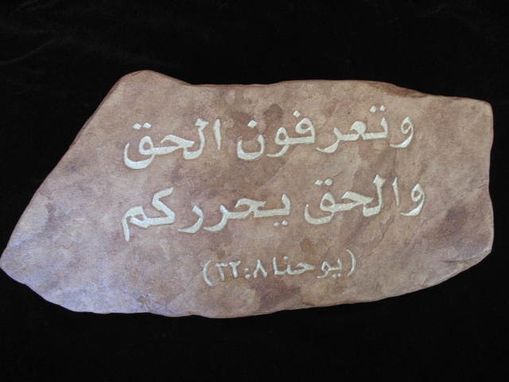 وتعرفون الحق
والحق يحرركم
(يوحنا ٨:٣٢)